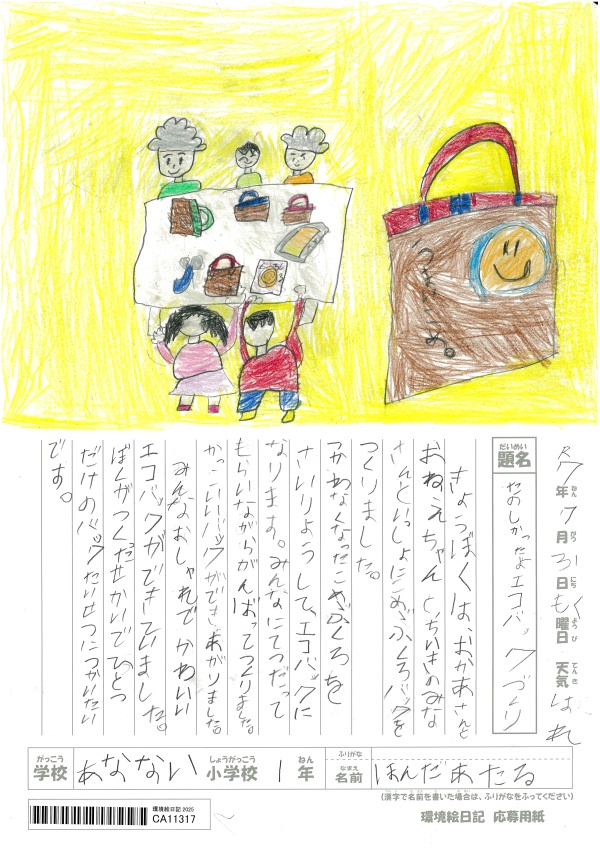 つよいこめ。
R7年7月31日もく曜日 天気 はれ
ねん がつ にち ようび てんき
だいめい
題名 たのしかったよエコバックづくり
きょうぼくは、おかあさんと
おねえちゃんと、ちいきのみな
さんといっしょにこめぶくろバックを
つくりました。
つかわなくなったこめぶくろを
さいりようして、エコバックに
なります。みんなにてつだって
もらいながらがんばってつくりました。
かっこいいバックができあがりました。
みんなおしゃれでかわいい
エコバックができていました。
ぼくがつくったせかいでひとつ
だけのバックたいせつにつかいたい
です。
がっこう しょうがっこう ねん ふりがな なまえ
学校 あなない 小学校 1年 名前 ほんだあたる
(漢字で名前を書いた場合は、ふりがなをふってください)
環境絵日記 2025
CA11317
環境絵日記 応募用紙